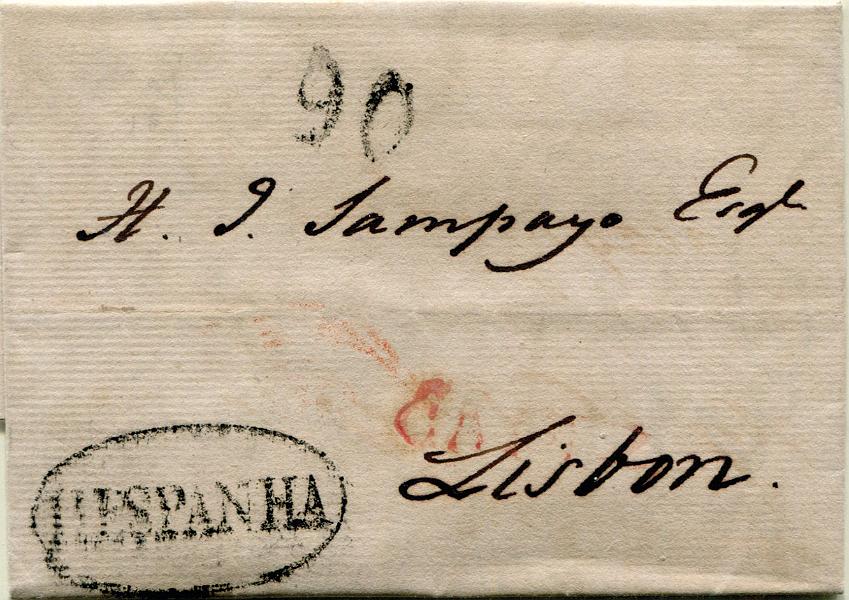 90
H. J. Sampayo Esqr
Lisbon.
HESPANHA